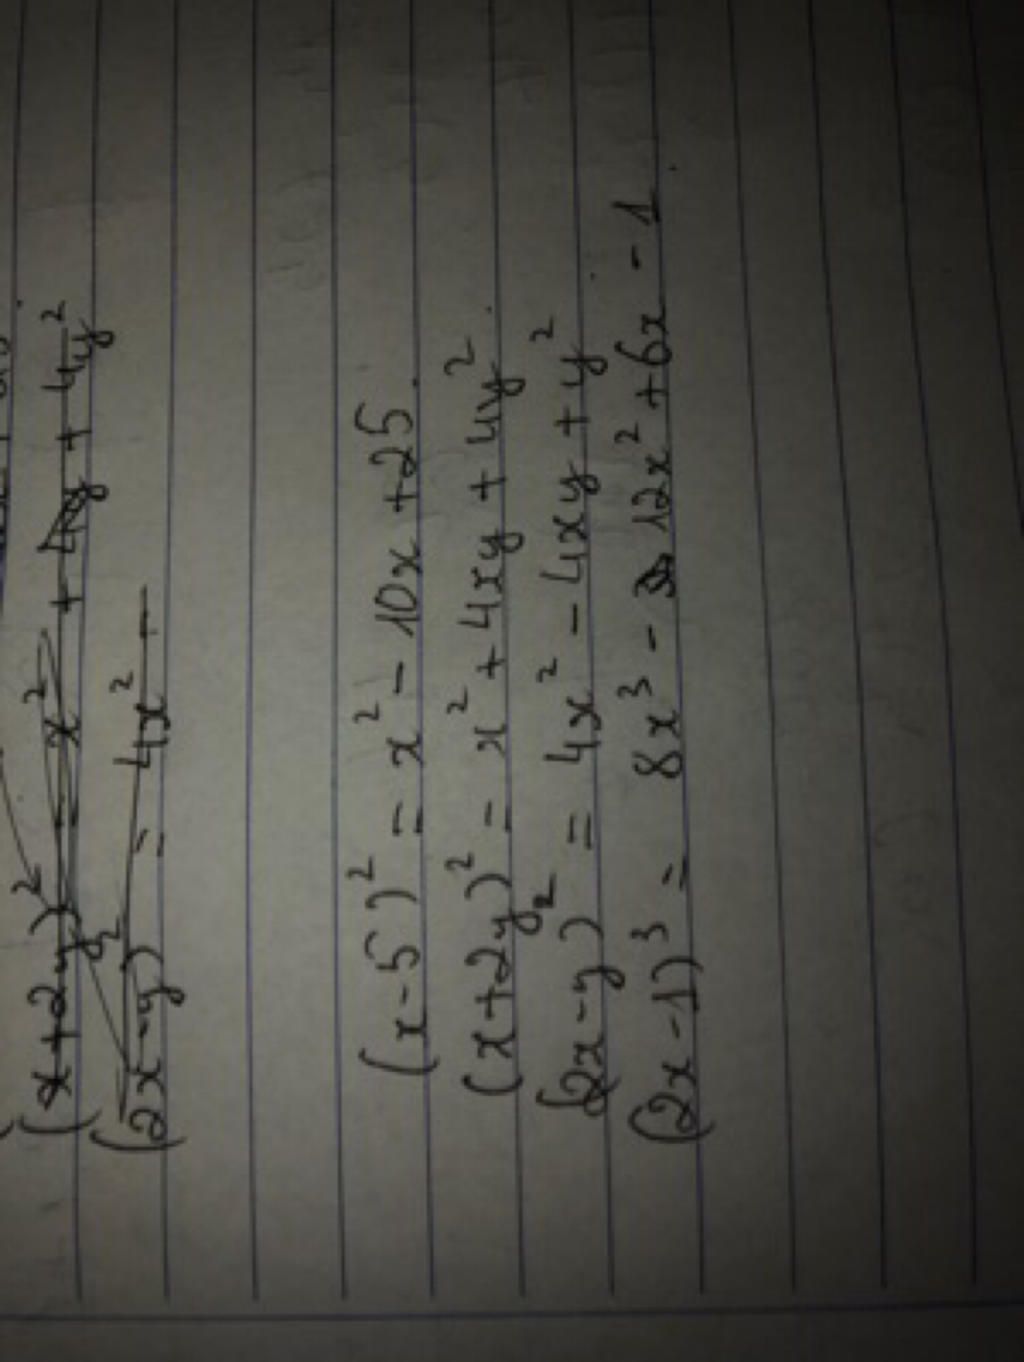 (x+2y)² = x² + 4xy + 4y²
(2x-y)² = 4x² -
(x-5)² = x² - 10x + 25
(x+2y)² = x² + 4xy + 4y²
(2x-y)² = 4x² - 4xy + y²
(2x-1)³ = 8x³ - 12x² + 6x - 1